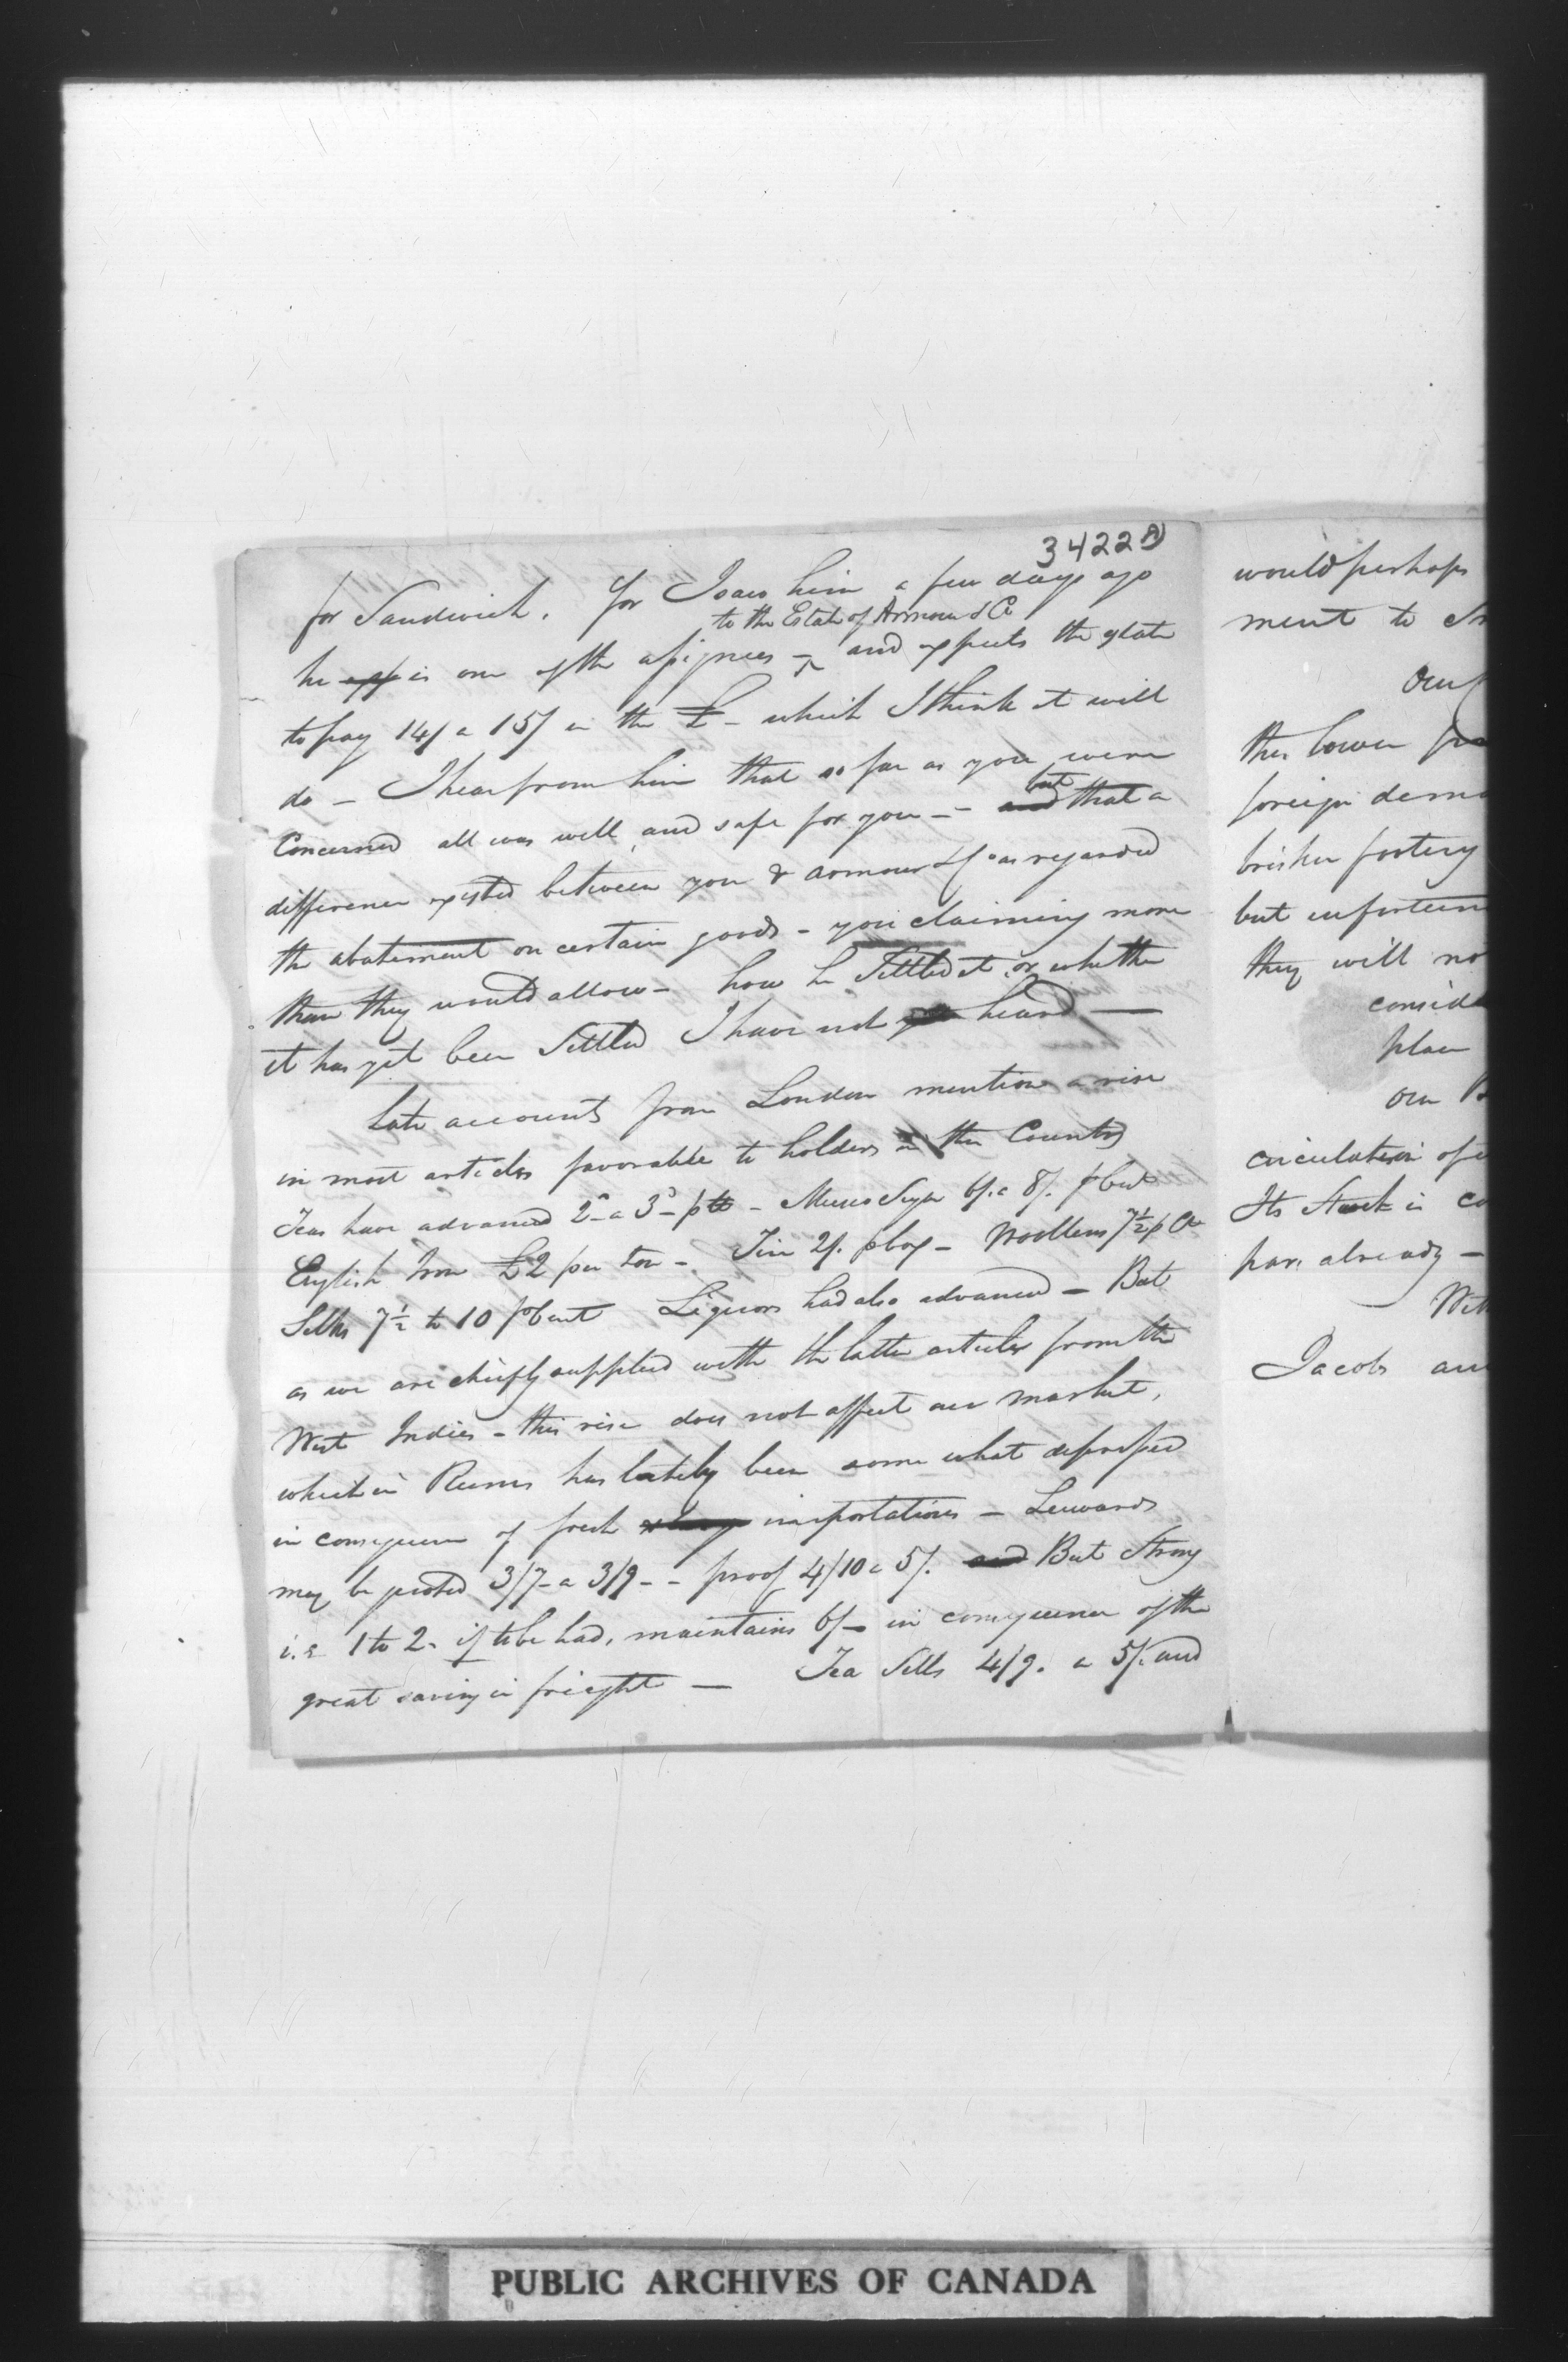 3422 A
for Sandwich. for I saw him a few days ago
to the Estate of Armour & Co
he is one of the assignees - and expects the estate
to pay 14/ a 15/ in the £ - which I think it will
do - I hear from him that so far as you were
but
Concerned all was well, and safe for you - - and that a
difference existed between you & Armour & Co as regarded
the abatement on certain goods - you claiming more
than they would allow - how he Settled it or whether
it has yet been Settled I have not heard -
Late accounts from London mention a rise
in most articles favorable to holders in this Country
Teas have advanced 2d a 3d p lb - Musco Sugar 6/. a 8/. p Cwt
English Iron £2 per ton - Tin 2/. p box - Woollens 7½ p Ct
Silks 7½ to 10 p Cent Liquors had also advanced - But
as we are chiefly supplied with the latter articles from the
West Indies - this rise does not affect our market,
which in Rums has lately been some what depressed
in consequence of fresh importations - Leewards
may be quoted 3/7 - a 3/9 - - proof 4/10 a 5/. and But Strong
i.e 1 to 2 - if to be had, maintains 6/- in consequence of the
great saving in freight - Tea Sells 4/9. a 5/. and
would perhaps
ment to
Our
this lower
foreign dem
brisker footing
but unfortun
they will no
consid
place
our B
circulation of
Its Stock is co
par already -
Wit
Jacob an
PUBLIC ARCHIVES OF CANADA